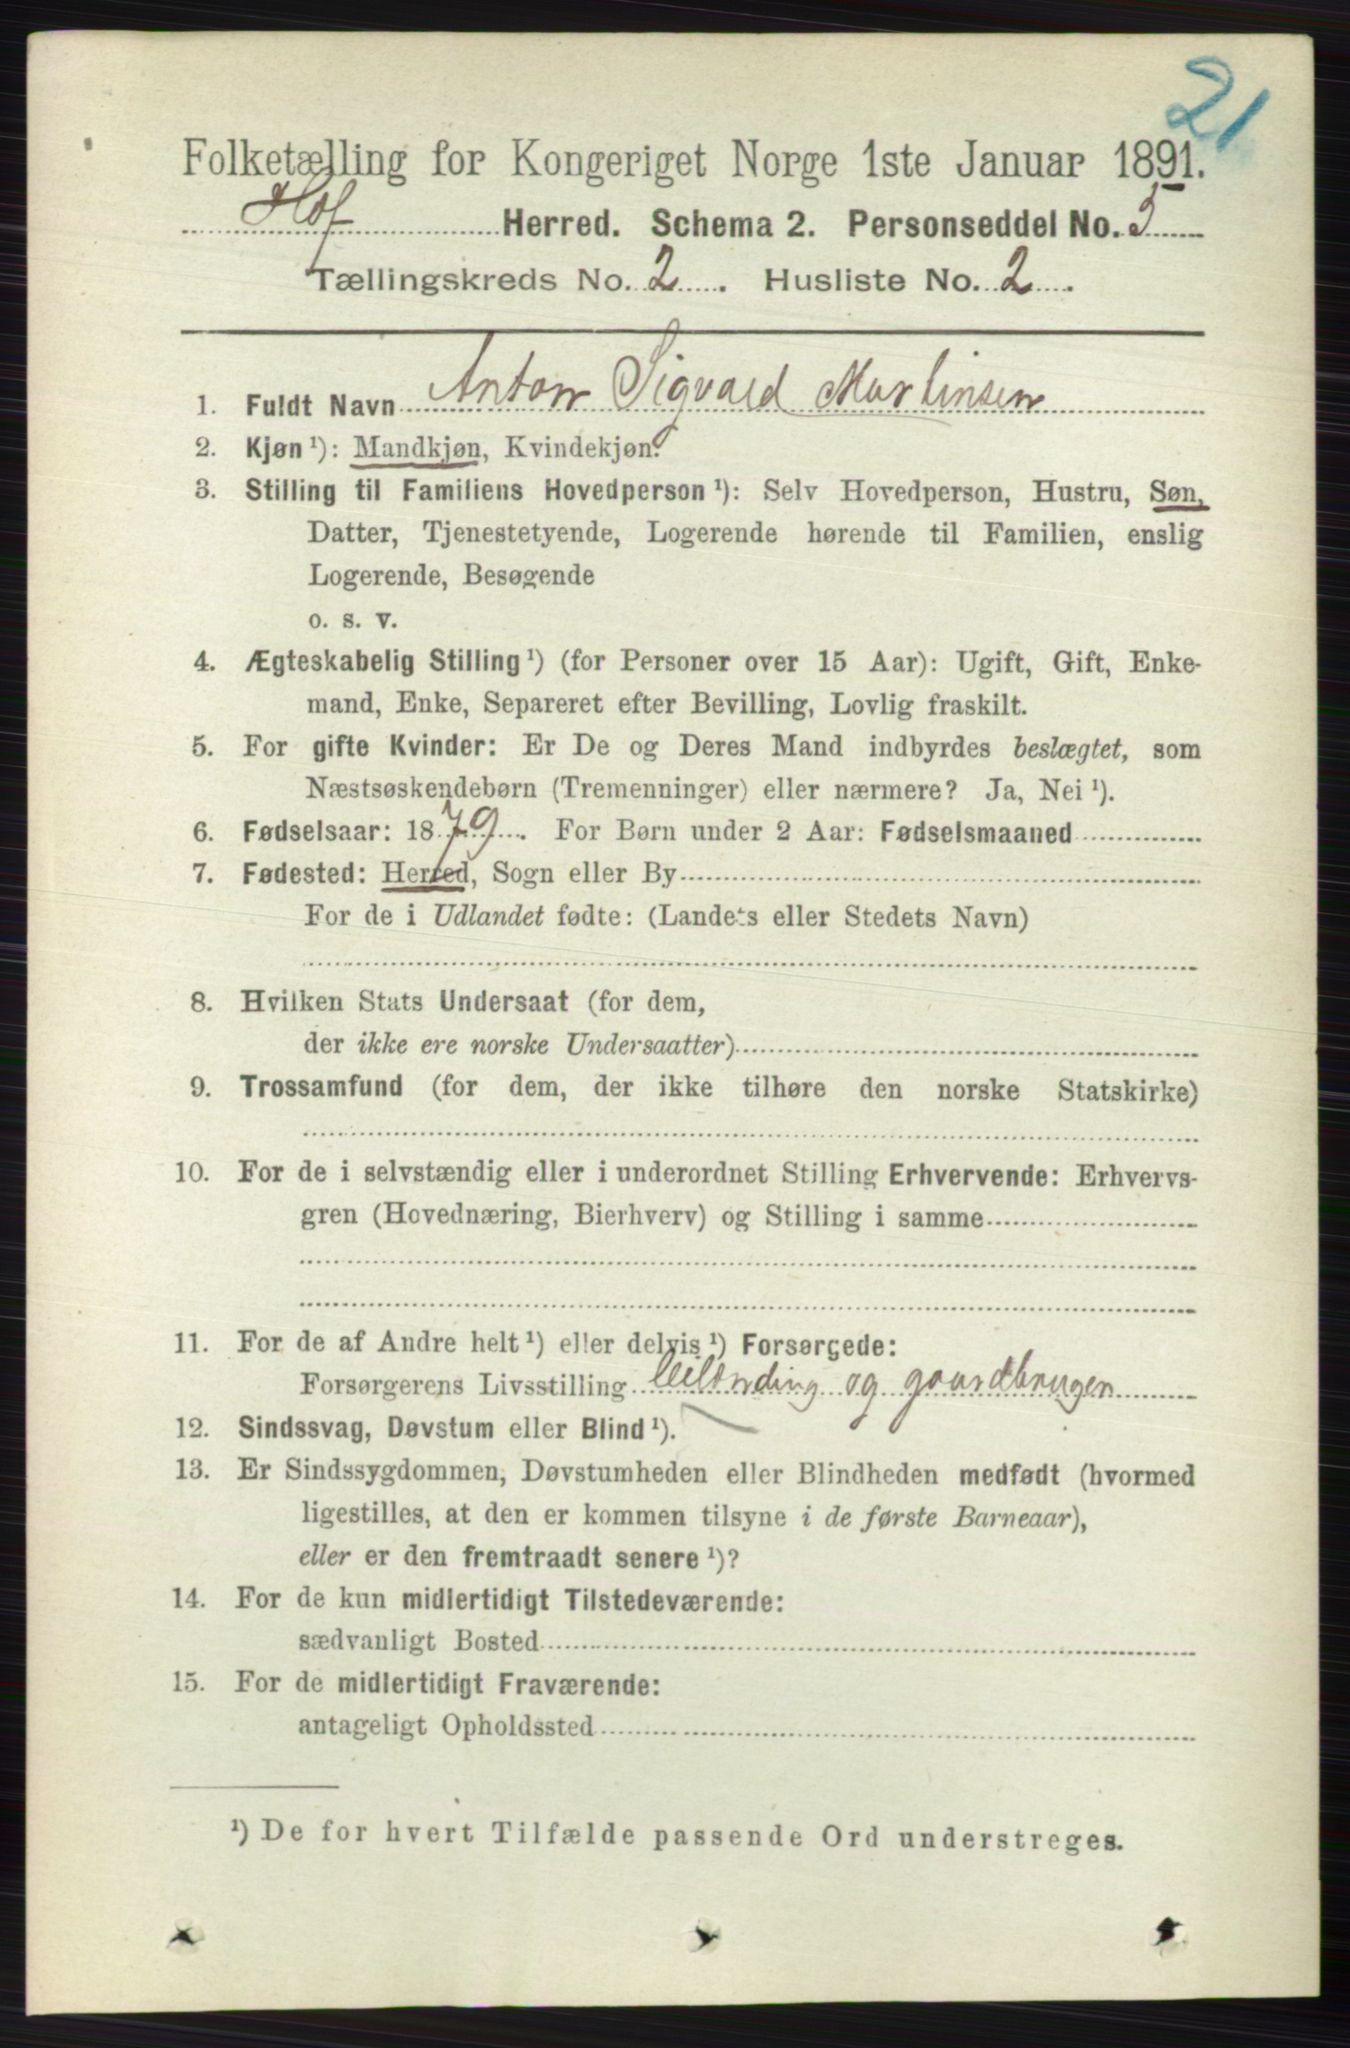 21
Folketælling for Kongeriget Norge 1ste Januar 1891.
Hof Herred. Schema 2. Personseddel No. 5
Tællingskreds No. 2. Husliste No. 2.
1. Fuldt Navn Anton Sigvald Martinsen
2. Kjøn ¹): Mandkjøn, Kvindekjøn.
3. Stilling til Familiens Hovedperson ¹): Selv Hovedperson, Hustru, Søn,
Datter, Tjenestetyende, Logerende hørende til Familien, enslig
Logerende, Besøgende
o. s. v.
4. Ægteskabelig Stilling ¹) (for Personer over 15 Aar): Ugift, Gift, Enke-
mand, Enke, Separeret efter Bevilling, Lovlig fraskilt.
5. For gifte Kvinder: Er De og Deres Mand indbyrdes beslægtet, som
Næstsøskendebørn (Tremenninger) eller nærmere? Ja, Nei ¹).
6. Fødselsaar: 1879. For Børn under 2 Aar: Fødselsmaaned
7. Fødested: Herred, Sogn eller By
For de i Udlandet fødte: (Landets eller Stedets Navn)
8. Hvilken Stats Undersaat (for dem,
der ikke ere norske Undersaatter)
9. Trossamfund (for dem, der ikke tilhøre den norske Statskirke)
10. For de i selvstændig eller i underordnet Stilling Erhvervende: Erhvervs-
gren (Hovednæring, Bierhverv) og Stilling i samme
11. For de af Andre helt ¹) eller delvis ¹) Forsørgede:
Forsørgerens Livsstilling leilending og gaardbruger
12. Sindssvag, Døvstum eller Blind ¹).
13. Er Sindssygdommen, Døvstumheden eller Blindheden medfødt (hvormed
ligestilles, at den er kommen tilsyne i de første Barneaar),
eller er den fremtraadt senere ¹)?
14. For de kun midlertidigt Tilstedeværende:
sædvanligt Bosted
15. For de midlertidigt Fraværende:
antageligt Opholdssted
¹) De for hvert Tilfælde passende Ord understreges.